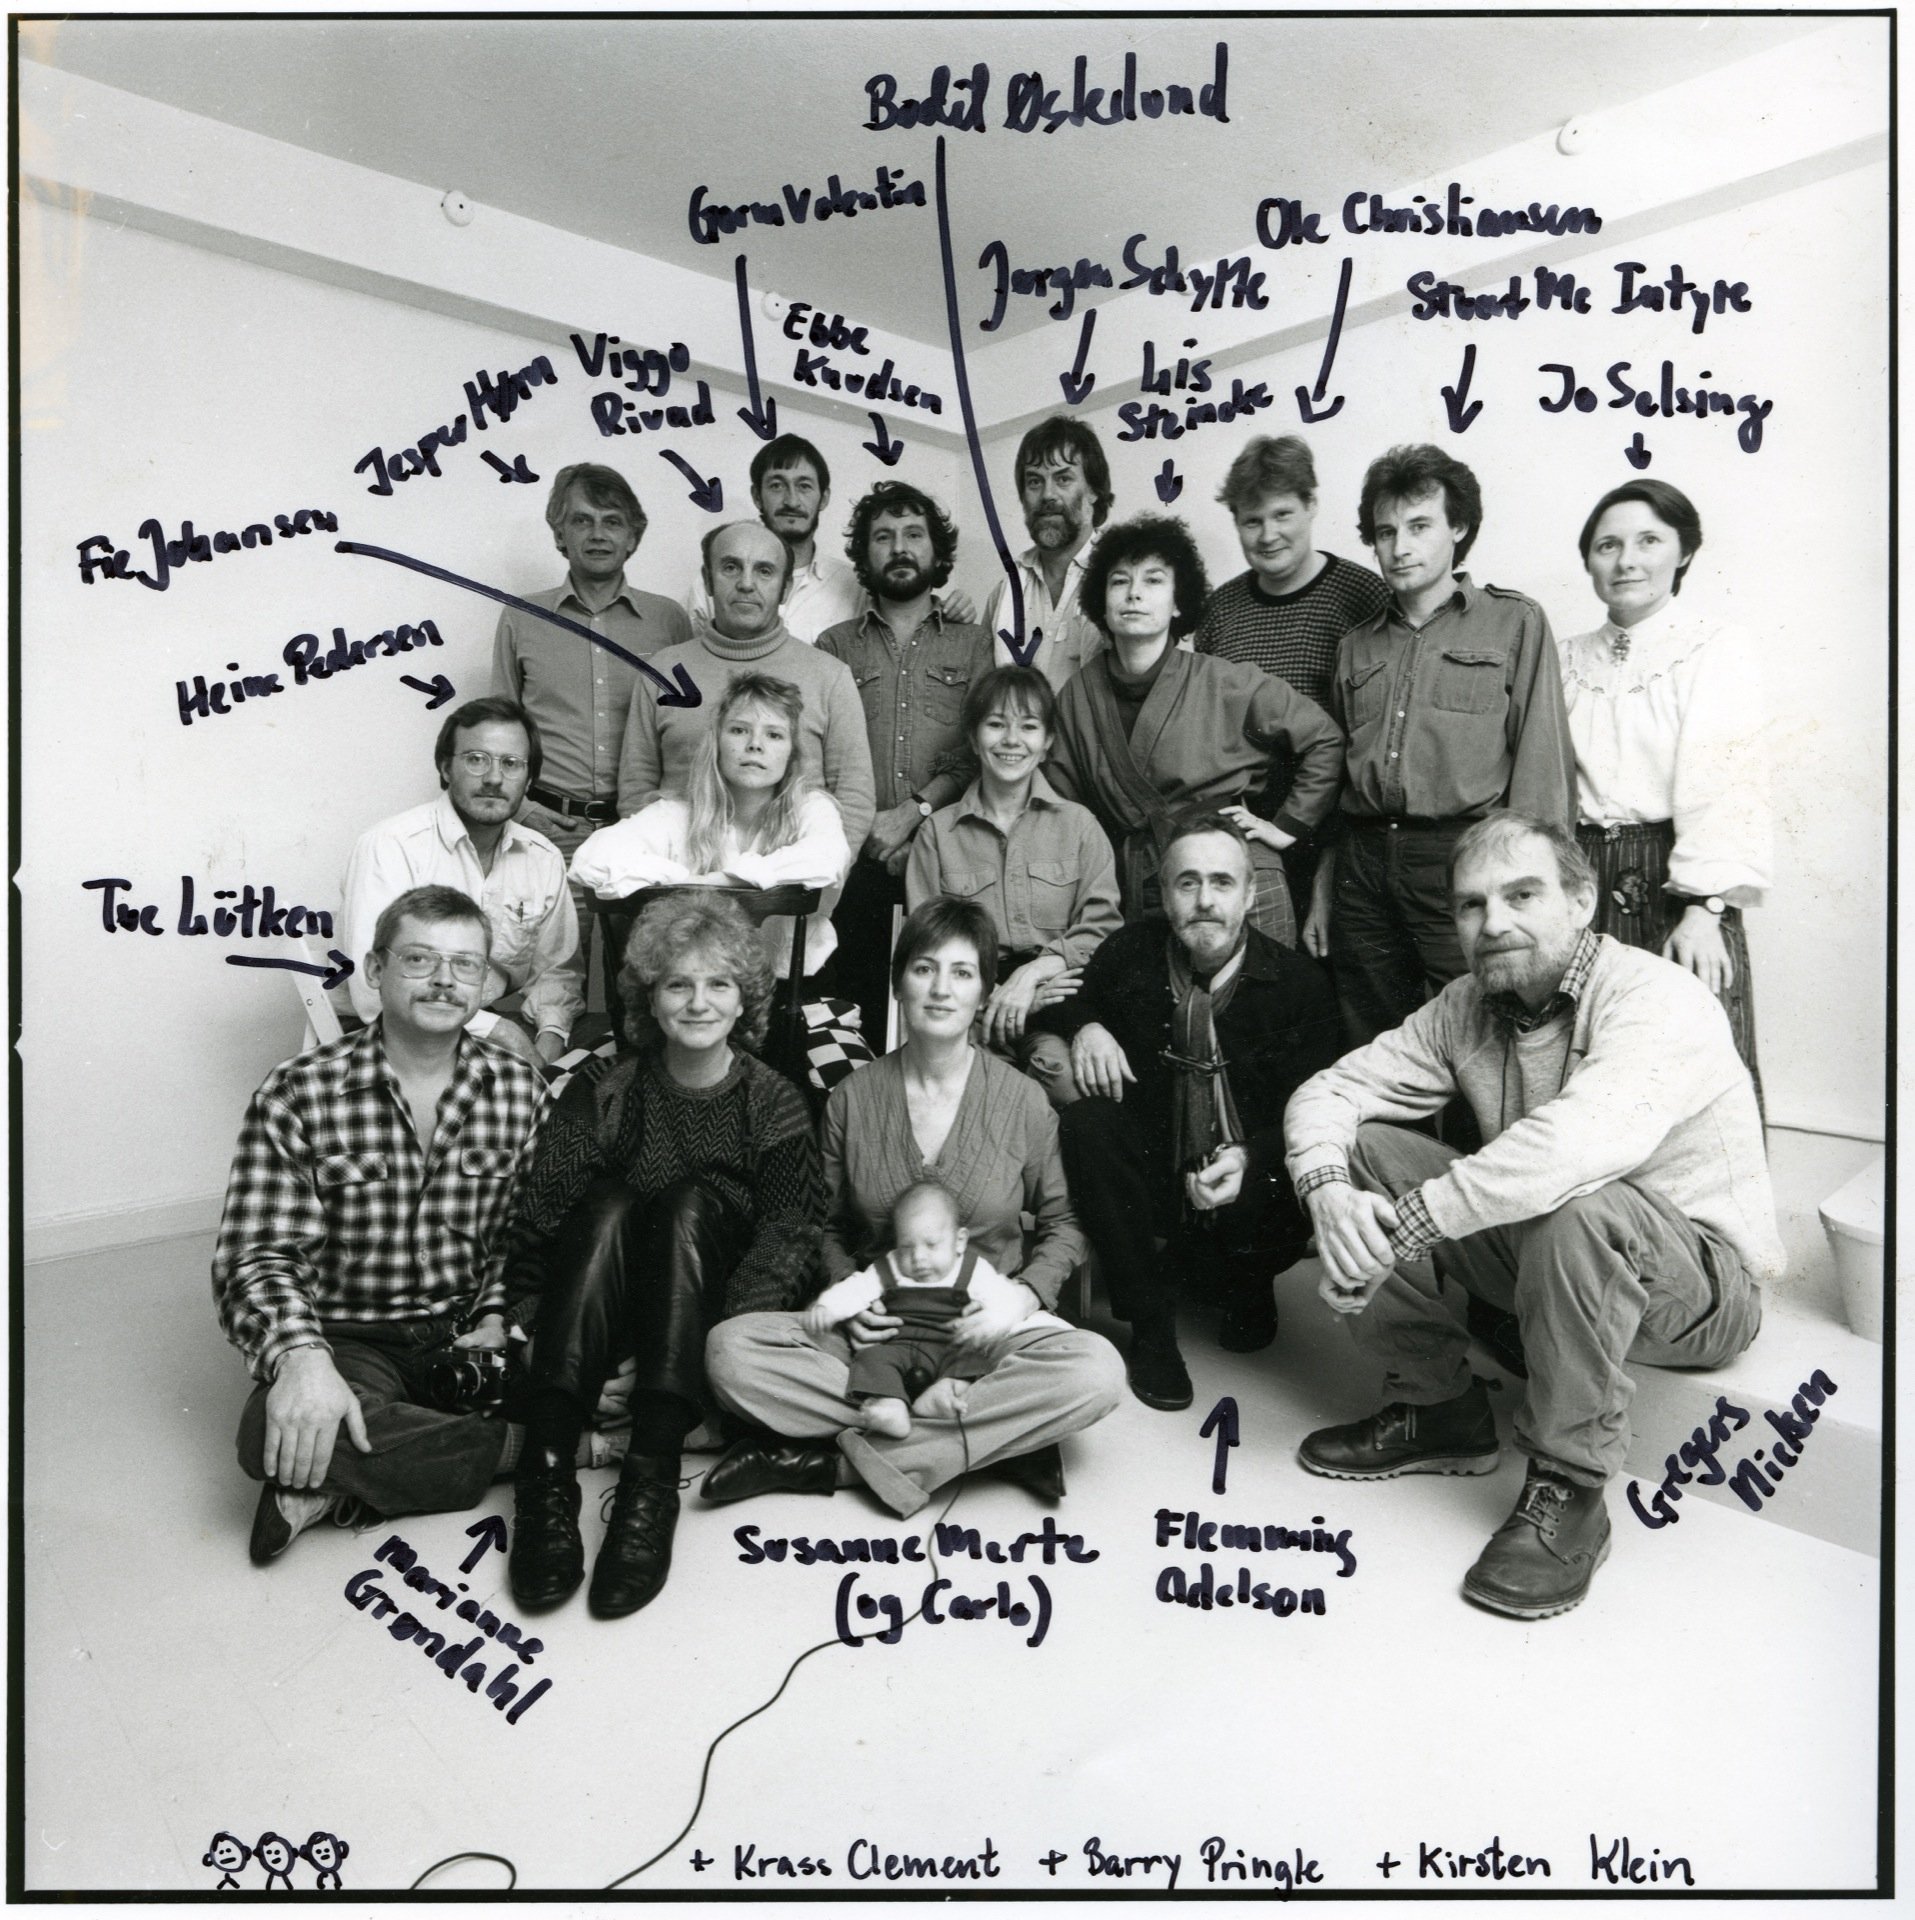 Bodil Østerlund
Gorm Valentin
Ole Christiansen
Jørgen Schytte
Stuart Mc Intyre
Ebbe
Knudsen
Viggo
Rivad
Jesper Høm
Lis
Steincke
Jo Selsing
Fie Johansen
Heine Pedersen
Tue Lütken
Gregers
Nielsen
Marianne
Grøndahl
Susanne Mertz
(og Carlo)
Flemming
Adelson
+ Krass Clement + Barry Pringle + Kirsten Klein